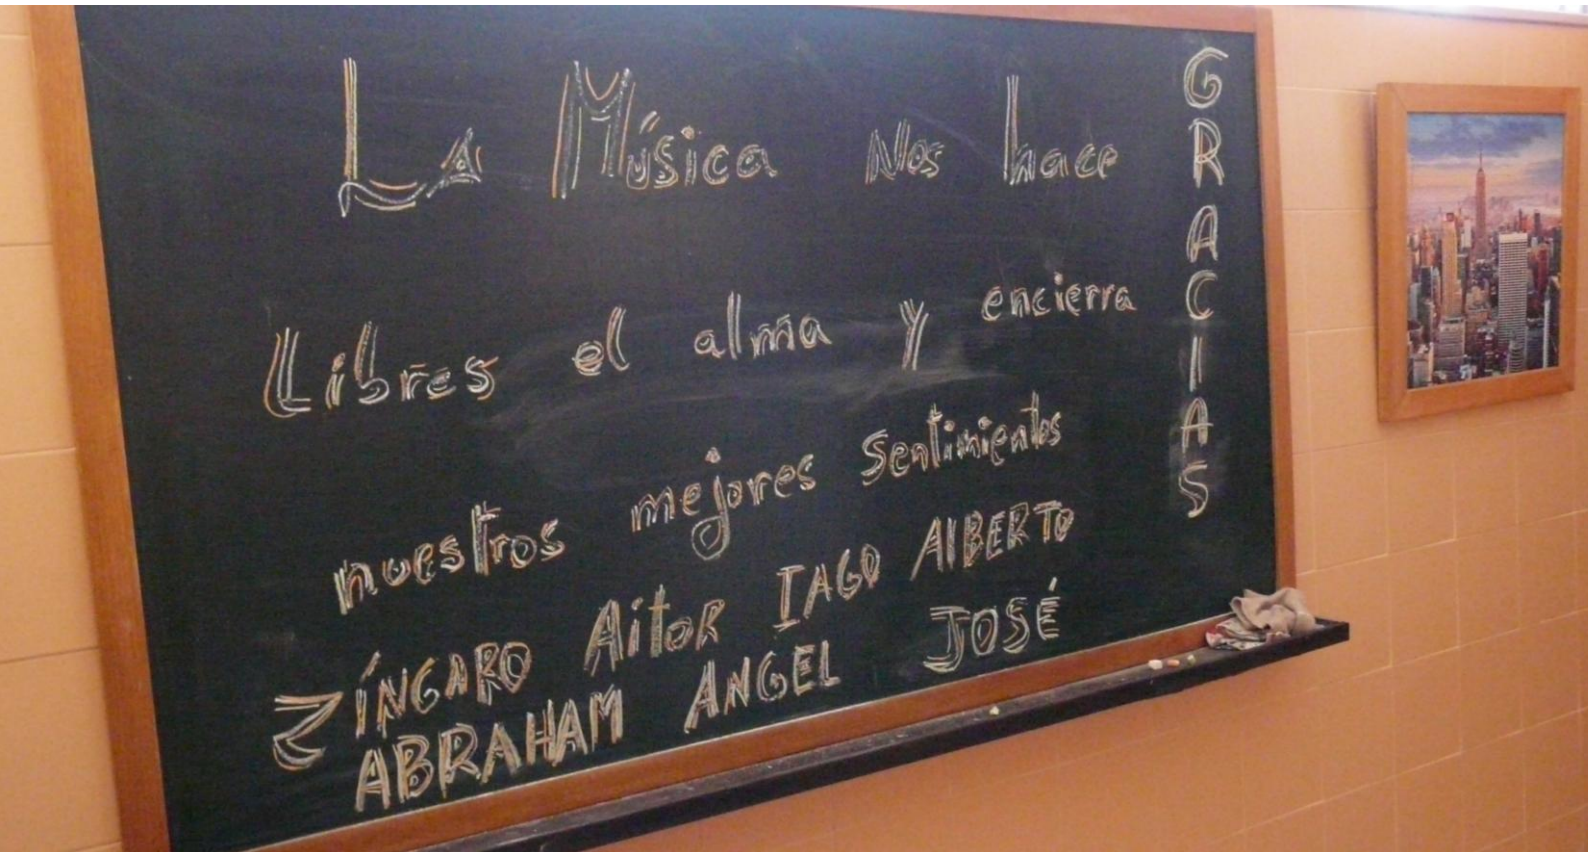 La Música Nos hace
Libres el alma y encierra
nuestros mejores sentimientos
ZÍNGARO AitoR IAGO AlBERTO
ABRAHAM ANGEL JOSÉ
GRACIAS